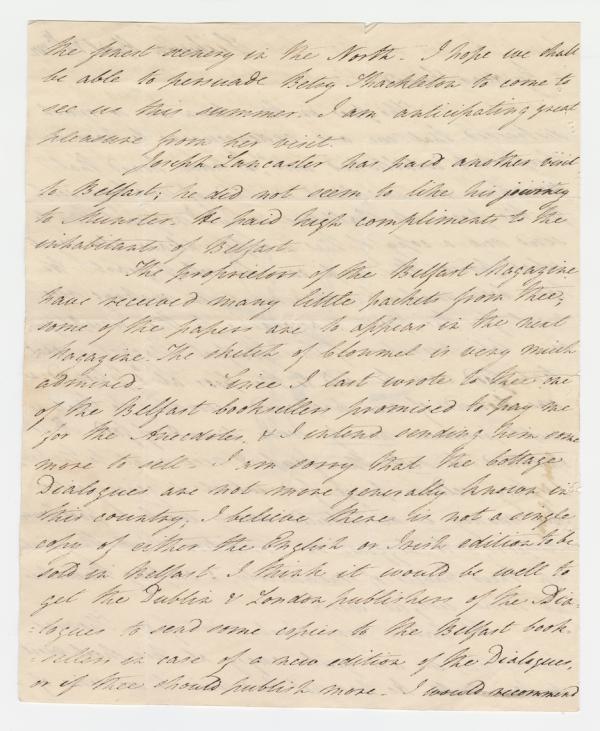 the finest scenery in the North. I hope we shall
be able to persuade Betsy Shackleton to come to
see us this summer. I am anticipating great
pleasure from her visit.
Joseph Lancaster has paid another visit
to Belfast; he did not seem to like his journey
to Munster. He paid high compliments to the
inhabitants of Belfast.
The proprietors of the Belfast Magazine
have received many little packets from thee,
some of the papers are to appear in the next
Magazine. The sketch of Clonmel is very much
admired. Since I last wrote to thee one
of the Belfast booksellers promised to pay me
for the Anecdotes, & I intend sending him some
more to sell. I am sorry that the Cottage
Dialogues are not more generally known in
this country, I believe there is not a single
copy of either the English or Irish edition to be
sold in Belfast. I think it would be well to
get the Dublin & London publishers of the Dia-
-logues to send some copies to the Belfast book-
-sellers in case of a new edition of the Dialogues,
or if thee should publish more. I would recommend